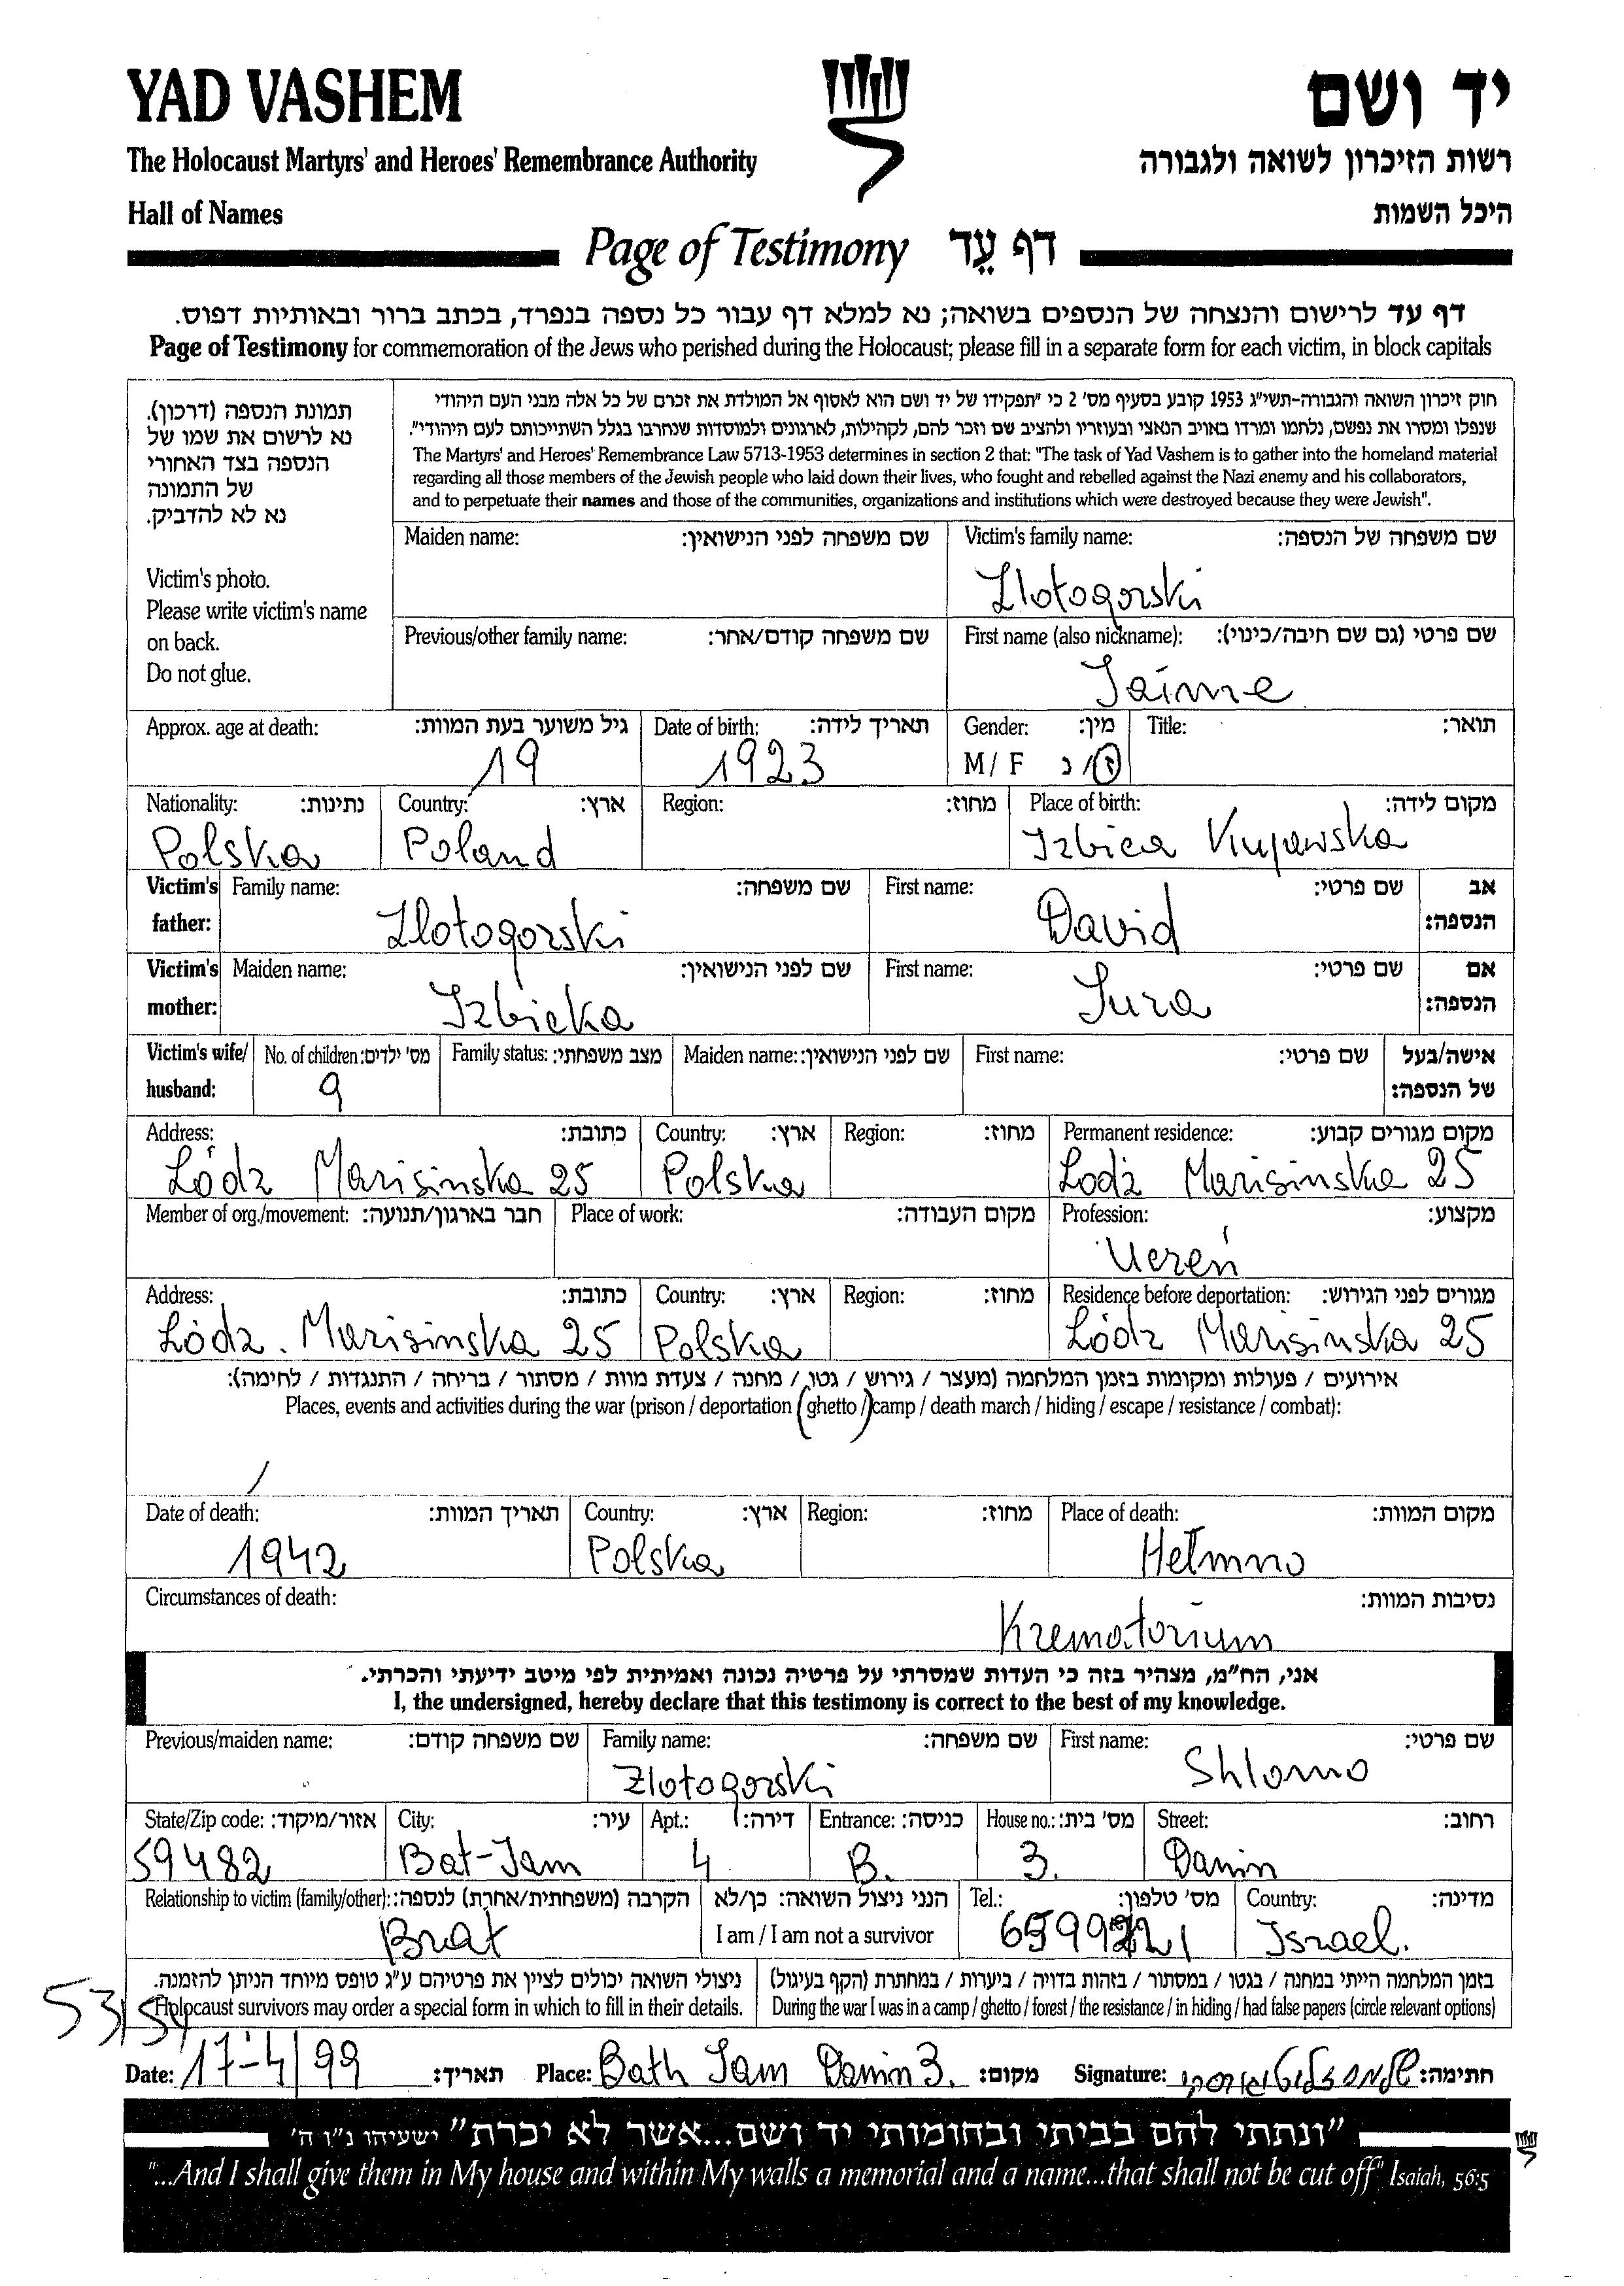 YAD VASHEM
יד ושם
The Holocaust Martyrs' and Heroes' Remembrance Authority
רשות הזיכרון לשואה ולגבורה
Hall of Names
היכל השמות
Page of Testimony דף עֵד
דף עד לרישום והנצחה של הנספים בשואה; נא למלא דף עבור כל נספה בנפרד, בכתב ברור ובאותיות דפוס.
Page of Testimony for commemoration of the Jews who perished during the Holocaust; please fill in a separate form for each victim, in block capitals
תמונת הנספה (דרכון).
נא לרשום את שמו של
הנספה בצד האחורי
של התמונה
נא לא להדביק.
Victim's photo.
Please write victim's name
on back.
Do not glue.
חוק זיכרון השואה והגבורה-תשי"ג 1953 קובע בסעיף מס' 2 כי "תפקידו של יד ושם הוא לאסוף אל המולדת את זכרם של כל אלה מבני העם היהודי
שנפלו ומסרו את נפשם, נלחמו ומרדו באויב הנאצי ובעוזריו ולהציב שם וזכר להם, לקהילות, לארגונים ולמוסדות שנחרבו בגלל השתייכותם לעם היהודי".
The Martyrs' and Heroes' Remembrance Law 5713-1953 determines in section 2 that: "The task of Yad Vashem is to gather into the homeland material
regarding all those members of the Jewish people who laid down their lives, who fought and rebelled against the Nazi enemy and his collaborators,
and to perpetuate their names and those of the communities, organizations and institutions which were destroyed because they were Jewish".
Maiden name: שם משפחה לפני הנישואין: Victim's family name: שם משפחה של הנספה:
Zlotogorski
Previous/other family name: שם משפחה קודם/אחר: First name (also nickname): שם פרטי (גם שם חיבה/כינוי):
Jaime
Approx. age at death: גיל משוער בעת המוות: Date of birth: תאריך לידה: Gender: מין: Title: תואר:
19 1923 M / F ז/נ
Nationality: נתינות: Country: ארץ: Region: מחוז: Place of birth: מקום לידה:
Polska Poland Izbica Kujawska
Victim's father: Family name: שם משפחה: First name: שם פרטי: אב הנספה:
Zlotogorski David
Victim's mother: Maiden name: שם לפני הנישואין: First name: שם פרטי: אם הנספה:
Izbicka Sura
Victim's wife/ husband: No. of children: מס' ילדים: Family status: מצב משפחתי: Maiden name: שם לפני הנישואין: First name: שם פרטי: אישה/בעל של הנספה:
9
Address: כתובת: Country: ארץ: Region: מחוז: Permanent residence: מקום מגורים קבוע:
Łódz Marisinska 25 Polska Łodz Marisinska 25
Member of org./movement: חבר בארגון/תנועה: Place of work: מקום העבודה: Profession: מקצוע:
Uczeń
Address: כתובת: Country: ארץ: Region: מחוז: Residence before deportation: מגורים לפני הגירוש:
Łódz. Marisinska 25 Polska Łódz Marisinska 25
אירועים / פעולות ומקומות בזמן המלחמה (מעצר / גירוש / גטו / מחנה / צעדת מוות / מסתור / בריחה / התנגדות / לחימה):
Places, events and activities during the war (prison / deportation / ghetto / camp / death march / hiding / escape / resistance / combat):
Date of death: תאריך המוות: Country: ארץ: Region: מחוז: Place of death: מקום המוות:
1942 Polska Hełmno
Circumstances of death: נסיבות המוות:
Krematorium
אני, הח"מ, מצהיר בזה כי העדות שמסרתי על פרטיה נכונה ואמיתית לפי מיטב ידיעתי והכרתי.
I, the undersigned, hereby declare that this testimony is correct to the best of my knowledge.
Previous/maiden name: שם משפחה קודם: Family name: שם משפחה: First name: שם פרטי:
Zlotogorski Shlomo
State/Zip code: אזור/מיקוד: City: עיר: Apt.: דירה: Entrance: כניסה: House no.: מס' בית: Street: רחוב:
59482 Bat-Jam 4 B. 3. Danin
Relationship to victim (family/other): הקרבה (משפחתית/אחרת) לנספה: הנני ניצול השואה: כן/לא Tel.: מס' טלפון: Country: מדינה:
Brat I am / I am not a survivor Israel.
ניצולי השואה יכולים לציין את פרטיהם ע"ג טופס מיוחד הניתן להזמנה. בזמן המלחמה הייתי במחנה / בגטו / במסתור / בזהות בדויה / ביערות / במחתרת (הקף בעיגול)
Holocaust survivors may order a special form in which to fill in their details. During the war I was in a camp / ghetto / forest / the resistance / in hiding / had false papers (circle relevant options)
53/54
Date: 17-4/99 תאריך: Place: Bath Jam Danin 3. מקום: Signature: שלמה זלוטוגורסקי חתימה:
"ונתתי להם בביתי ובחומותי יד ושם...אשר לא יכרת" ישעיהו נ"ו ה'
"...And I shall give them in My house and within My walls a memorial and a name...that shall not be cut off" Isaiah, 56:5